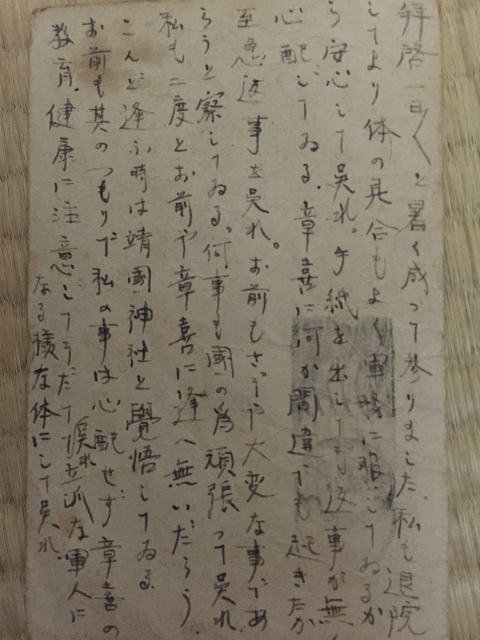 拝啓 一日〱と暑く成って参りました、私も退院
してより体の具合もよく軍務に服してゐるか
ら安心して呉れ。手紙を出しても返事が無く
心配してゐる、章喜に何か間違でも起きたか
至急返事を呉れ。お前もさぞや大変な事であ
らうと察してゐる。何事も国の為頑張って呉れ
私も二度とお前や章喜に逢へ無いだらう
こんど逢ふ時は靖國神社と覺悟してゐる
お前も其のつもりで私の事は心配せず章喜の
教育、健康に注意してそだて俺れ立派な軍人に
なる様な体にして呉れ